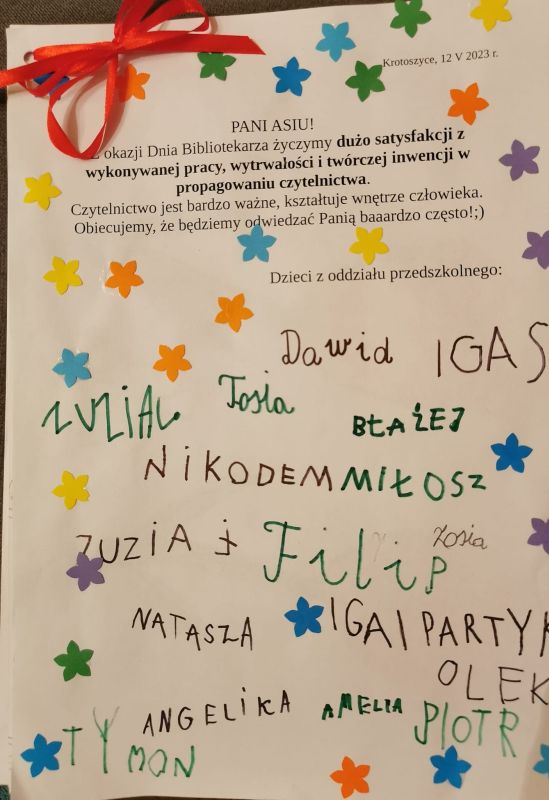 Krotoszyce, 12 V 2023 r.
PANI ASIU!
okazji Dnia Bibliotekarza życzymy dużo satysfakcji z
wykonywanej pracy, wytrwałości i twórczej inwencji w
propagowaniu czytelnictwa.
Czytelnictwo jest bardzo ważne, kształtuje wnętrze człowieka.
Obiecujemy, że będziemy odwiedzać Panią baaardzo często!;)
Dzieci z oddziału przedszkolnego:
Dawid IGA S
ZUZIA Tosia BŁAŻEJ
NIKODEM MIŁOSZ
ZUZIA Filip Zosia
NATASZA IGA PARTYK
OLEK
TYMON ANGELIKA AMELIA PIOTR